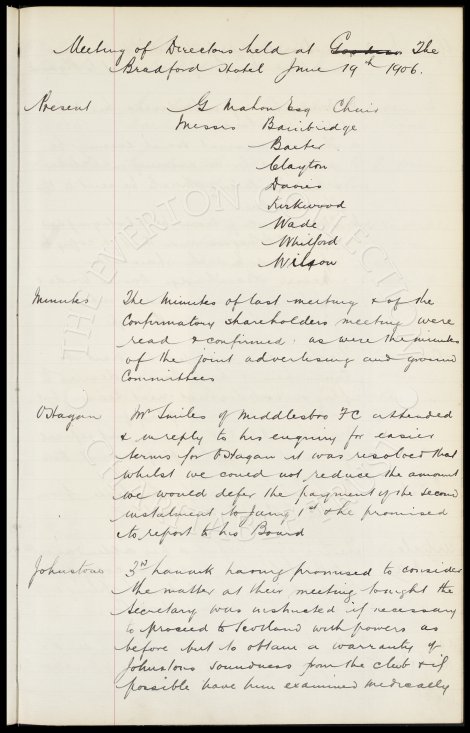 Meeting of Directors held at Goodison The
Bradford Hotel June 19th 1906.
Present G Mahon Esq Chair
Messrs Bainbridge
Baxter
Clayton
Davies
Kirkwood
Wade
Whitford
Wilson
Minutes The Minutes of last meeting & of the
Confirmatory Shareholders meeting were
read & confirmed. as were the minutes
of the joint advertising and ground
Committees
O'Hagan Mr Smiles of Middlesboro FC attended
& in reply to his enquiry for easier
terms for O'Hagan it was resolved that
whilst we could not reduce the amount
we would defer the payment of the second
instalment to Jany 1st & he promised
to report to his Board
Johnstone 3rd Lanark having promised to consider
the matter at their meeting tonight the
Secretary was instructed if necessary
to proceed to Scotland with powers as
before but to obtain a warranty of
Johnstons soundness from the club & if
possible have him examined medically
THE EVERTON COLLECTION